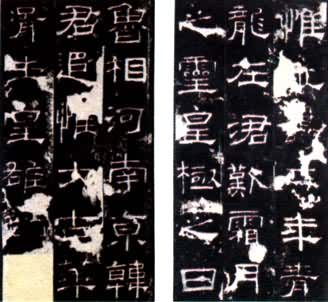 惟永年青
龍在涒歎霜月
之靈皇極之日
魯相河南京韓
君追惟太古華
胥生皇雄